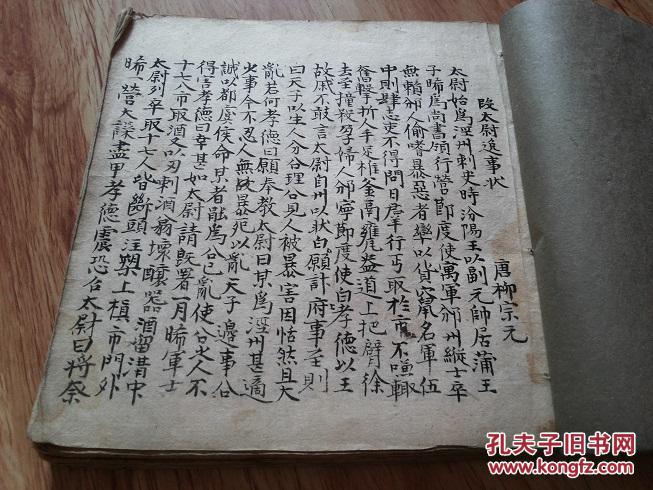 段太尉逸事状
唐柳宗元
太尉始為涇州刺史時汾陽王以副元帥居蒲王
子晞為尚書領行營節度使寓軍邠州縱士卒
無賴邠人偷嗜暴惡者率以貨竄名軍伍
中則肆志吏不得問日群行丐取於市不嗛輒
奮擊折人手足椎釜鬲甕盎道上把臂徐
去至撞殺孕婦人邠寧節度使白孝德以王
故戚不敢言太尉自州以狀白願計府事至則
曰天子以生人分合理公見人被暴害因恬然且大
亂若何孝德曰願奉教太尉曰某為涇州甚適
火事今不忍人無故暴死以亂天子邊事公
誠以都虞侯命某者能為公已亂使公火人不
得害孝德曰幸甚如太尉請既署一月晞軍士
十七人市取酒又以刃刺酒翁壞釀器酒留溝中
太尉列卒取十七人皆斷頭注槊上植市門外
晞一營大譟盡甲孝德震恐召太尉曰將奈
孔夫子旧书网
www.kongfz.com